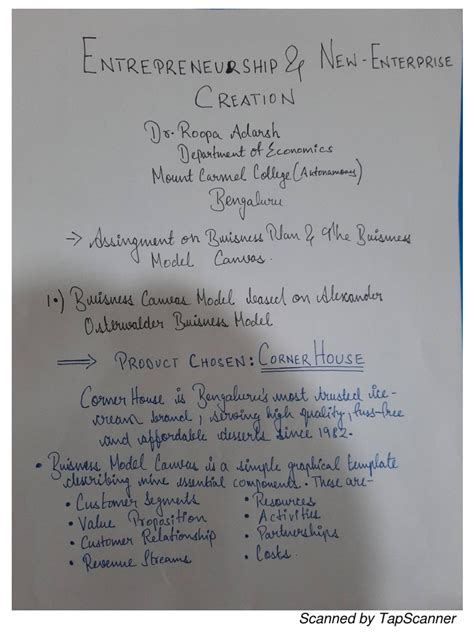 ENTREPRENEURSHIP & NEW-ENTERPRISE
CREATION
Dr. Roopa Adarsh
Department of Economics
Mount Carmel College (Autonomous)
Bengaluru
→ Assingment on Buisness Plan & The Buisness
Model Canvas.
1.) Buisness Canvas Model based on Alexander
Osterwalder Buisness Model
⟹ PRODUCT CHOSEN: CORNER HOUSE
Corner House is Bengaluru's most trusted ice-
cream brand, serving high quality, fuss-free
and affordable desserts since 1982.
• Buisness Model Canvas is a simple graphical template
describing nine essential components. These are-
• Customer Segments
• Value Proposition
• Customer Relationship
• Revenue Streams
• Resources
• Activities
• Partnerships
• Costs.
Scanned by TapScanner